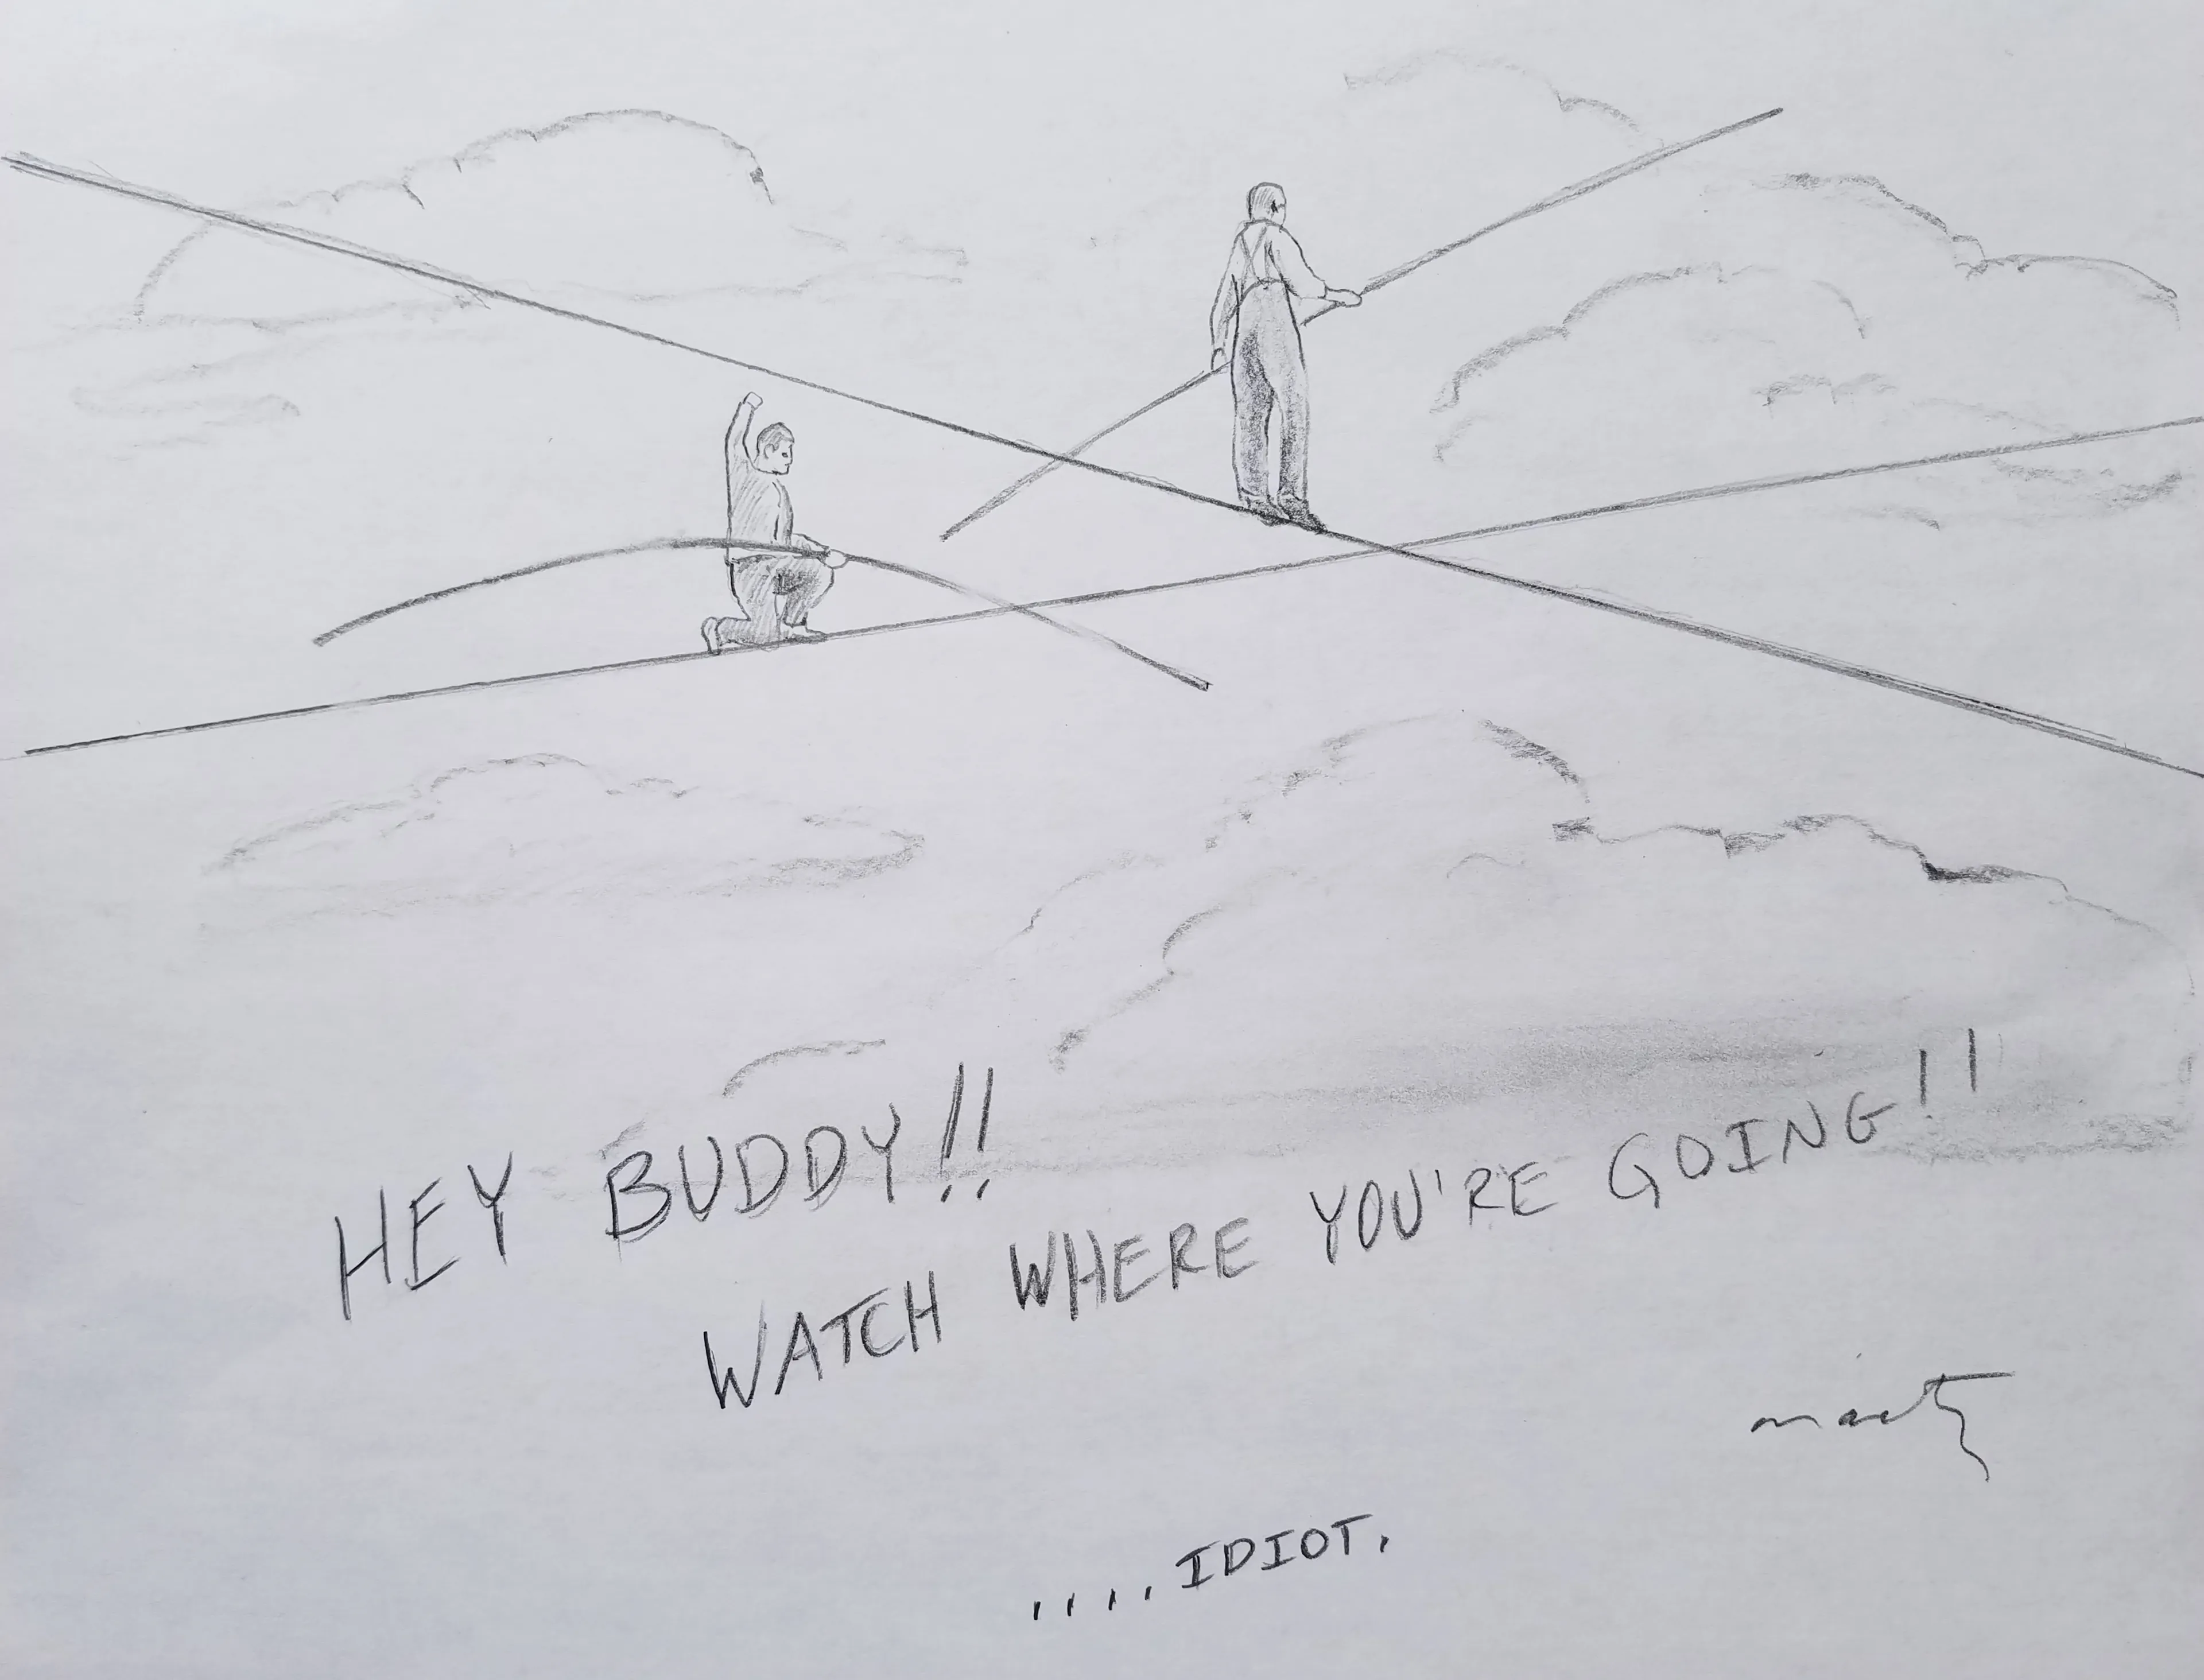 HEY BUDDY!!
WATCH WHERE YOU'RE GOING!!
marty
....IDIOT.